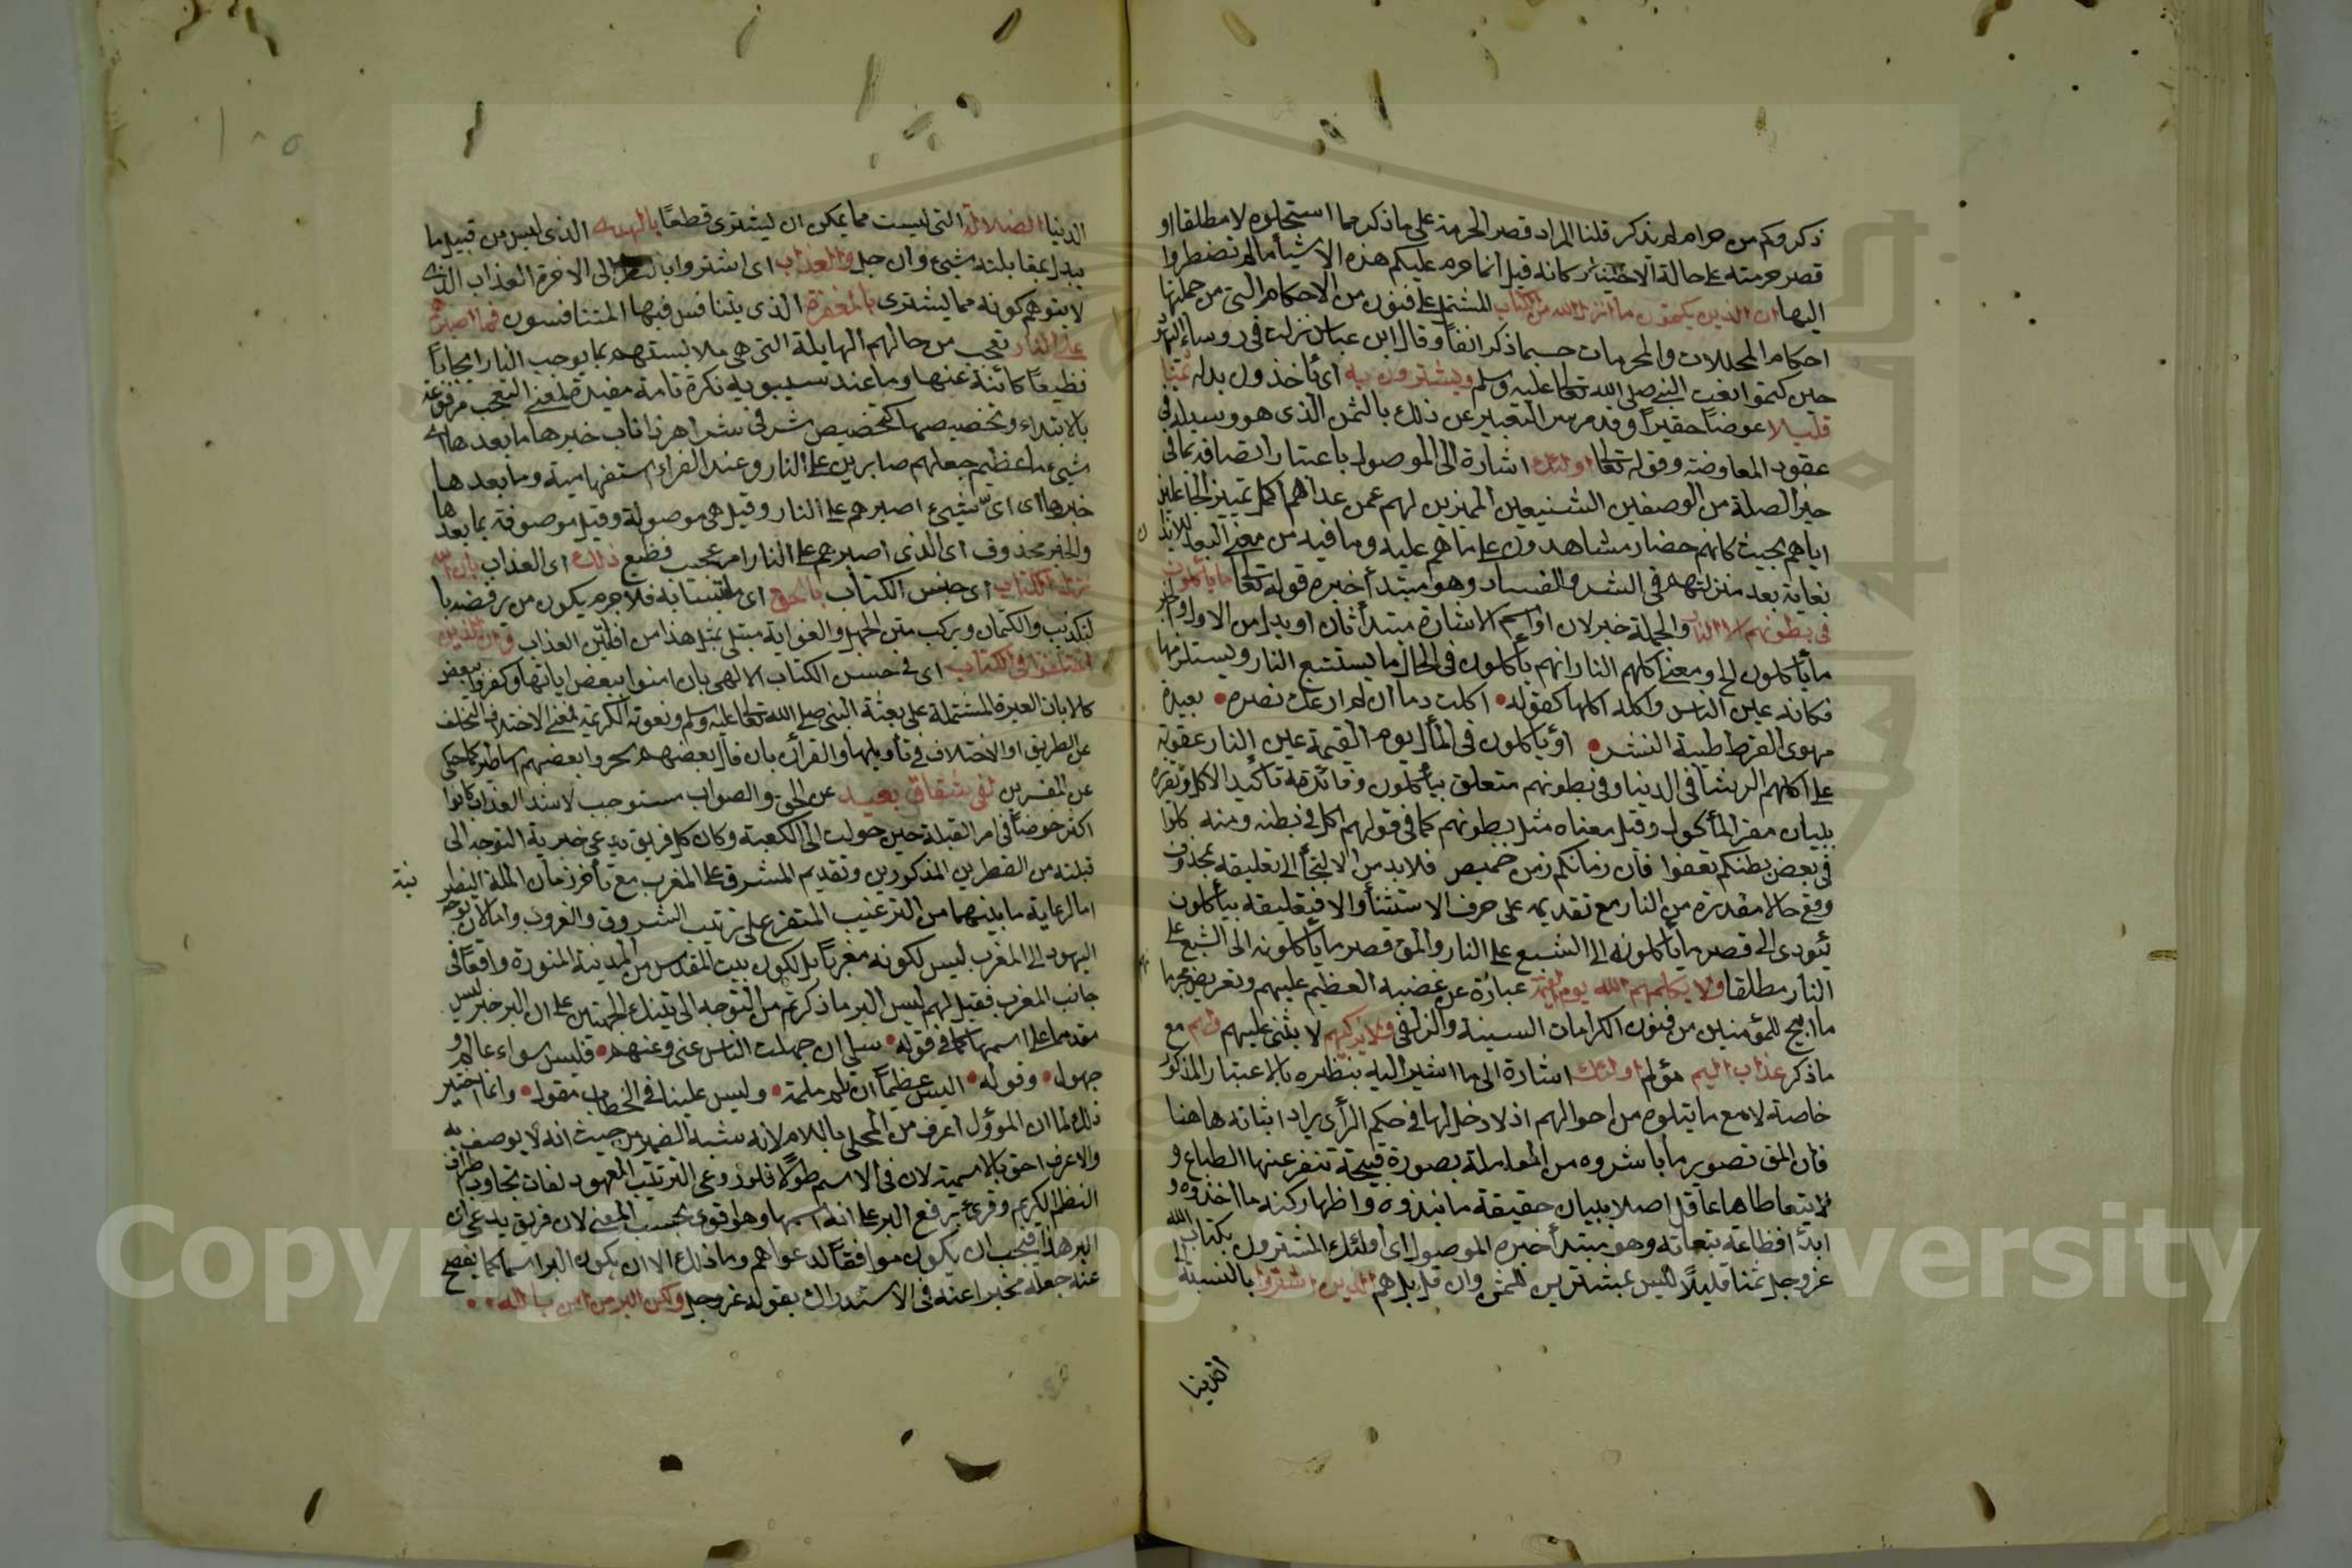 ذكر وكم من حرام لم يذكر قلنا المراد قصر الحرمة على ما ذكر مما استحلوه لا مطلقا او
قصر حرمته على حالة الاختيار كانه قيل انما حرم عليكم هذه الاشيأ ما لم تضطروا
اليها ان الذين يكتمون ما انزل الله من الكتاب المشتمل على فنون من الاحكام التى من جملتها
احكام المحللات والمحرمات حسبما ذكر انفاً وقال ابن عباس نزلت فى روساء اليهود
حين كتموا نعت النبى صلى الله تعالى عليه وسلم ويشترون به اى يأخذون بدله ثمنا
قليلا عوضاً حقيراً وقد مر سر التعبير عن ذلك بالثمن الذى هو وسيلة فى
عقود المعاوضة وقوله تعالى اولئك اشارة الى الموصول باعتبار اتصافه بما فى
حيز الصلة من الوصفين الشنيعين المميزين لهم عمن عداهم اكمل تمييز الجاعلين
اياهم بحيث كانهم حضار مشاهدون على ما هم عليه وما فيه من معنى البعد للايذان
بغاية بعد منزلتهم فى الشر والفساد وهو مبتدأ خبره قوله تعالى ما يأكلون
فى بطونهم الا النار والجملة خبر لان او اسم الاشارة مبتدأ ثان او بدل من الاول والخبر
ما يأكلون الخ ومعنى اكلهم النار انهم يأكلون فى الحال ما يستتبع النار ويستلزمها
فكانه عين النار واكله اكلها كقوله • اكلت دما ان لم ارعك بضرة • بعيدة
مهوى القرط طيبة النشر • او يأكلون فى المأل يوم القيمة عين النار عقوبة
على اكلهم الرشا فى الدنيا وفى بطونهم متعلق بيأكلون وفائدته تأكيد الاكل وتقريره
ببيان مقر المأكول وقيل معناه مثل بطونهم كما فى قولهم اكل فى بطنه ومنه كلوا
فى بعض بطنكم تعفوا فان زمانكم زمن خميص فلابد من الالتجأ الى تعليقه بمحذوف
وقع حالا مقدرة من النار مع تقديمه على حرف الاستثنأ والا فتعليقه بيأكلون
يؤدى الى قصر ما يأكلونه الى الشبع على النار والمق قصر ما يأكلونه الى الشبع على
النار مطلقا ولا يكلمهم الله يوم القيمة عبارة عن غضبه العظيم عليهم وتعريض بحرمانهم
ما اتيح للمؤمنين من فنون الكرامات السنية والزلفى ولا يزكيهم لا يثنى عليهم ولهم مع
ما ذكر عذاب اليم مؤلم اولئك اشارة الى ما اشير اليه بنظيره بالاعتبار المذكور
خاصة لا مع ما يتلوه من احوالهم اذ لا دخل لها فى حكم الرأى يراد اثباته هاهنا
فان المق تصوير ما باشروه من المعاملة بصورة قبيحة تنفر عنها الطباع و
لا يتعاطاها عاقل اصلا ببيان حقيقة ما نبذوه واظهار كنه ما اخذوه و
ابدأ فظاعة تبعاته وهو مبتدأ خبره الموصول اى اولئك المشترون بكتاب الله
عز وجل ثمنا قليلاً ليس بمشترين للثمن وان قل بل هم الذين اشتروا بالنسبة الى
الدنيا الضلالة التى ليست مما يمكن ان يشترى قطعاً بالهدى الذى ليس من قبيل ما
يبدل بمقابلته شيئ وان جل والعذاب اى اشتروا بالنظر الى الاخرة العذاب الذى
لا يتوهم كونه مما يشترى بالمغفرة الذى يتنافس فيها المتنافسون فما اصبرهم
على النار تعجب من حالهم الهايلة التى هى ملابستهم بما يوجب النار ايجاباً
قطيعاً كائنة عنها وما عند سيبويه نكرة تامة مفيدة لمعنى التعجب مرفوعة
بالابتداء وتخصيصها كتخصيص شر فى شر اهر ذا ناب خبرها ما بعدها اى
شيئ ما عظيم جعلهم صابرين على النار وعند الفراء استفهامية وما بعدها
خبرها اى اى شيئ اصبرهم على النار وقيل هى موصولة وقيل موصوفة بما بعدها
والخبر محذوف اى الذى اصبرهم على النار امر عجيب فظيع ذلك اى العذاب بان الله
نزل الكتاب اى جنس الكتاب بالحق اى ملتبسا به فلا جرم يكون من يرفضه با
لتكذيب والكتمان ويركب متن الجهل والغواية مبتلى بمثل هذا من افانين العذاب وان الذين
اختلفوا فى الكتاب اى فى جنس الكتاب الالهى بان امنوا ببعض اياتها وكفروا ببعض
كالايات المشتملة على بعثة النبى صلى الله تعالى عليه وسلم ونعوته الكريمة لمعنى الاختلاف التخلف
عن الطريق او الاختلاف فى تأويلها والقرأن بان قال بعضهم سحر وبعضهم اساطير كما حكى
عن المفسرين لفى شقاق بعيد عن الحق والصواب مستوجب لاشد العذاب كانوا
اكثر خوضاً فى امر القبلة حين حولت الى الكعبة وكان كل فريق يدعى خيرية التوجه الى
قبلته من القطرين المذكورين وتقديم المشرق على المغرب مع تأخر زمان الملة النصرانية
نية
اما لرعاية ما بينهما من الترتيب المتفرع على ترتيب الشروق والغروب واما لان توجه
اليهود الى المغرب ليس لكونه مغرباً بل لكون بيت المقدس من المدينة المنورة واقعاً فى
جانب المغرب فقيل لهم ليس البر ما ذكرتم من التوجه الى تينك الجهتين على ان البر خبر ليس
مقدما على اسمها كما فى قوله • سلى ان جهلت الناس عنى وعنهم • فليس سواء عالم و
جهول • وقوله • اليس عظيماً ان تلم ملمة • وليس علينا فى الخطاب مقول • وانما اختير
ذلك لما ان المؤول اعرف من المحلى باللام لانه يشبه الضمير من حيث انه لا يوصف به
والاعرف احق بالاسمية لان فى الاسم طولا فلو روعى الترتيب المعهود لفات تجاوب اطراف
النظم الكريم وقرئ برفع البر على انه اسمها وهو اقوى بحسب المعنى لان فريق يدعى ان
البر هذا فيجب ان يكون موافقاً لدعواهم وما ذلك الا ان يكون البر اسما كما يفصح
عنه جعله مخبرا عنه فى الاستدراك بقوله عز وجل ولكن البر من امن بالله